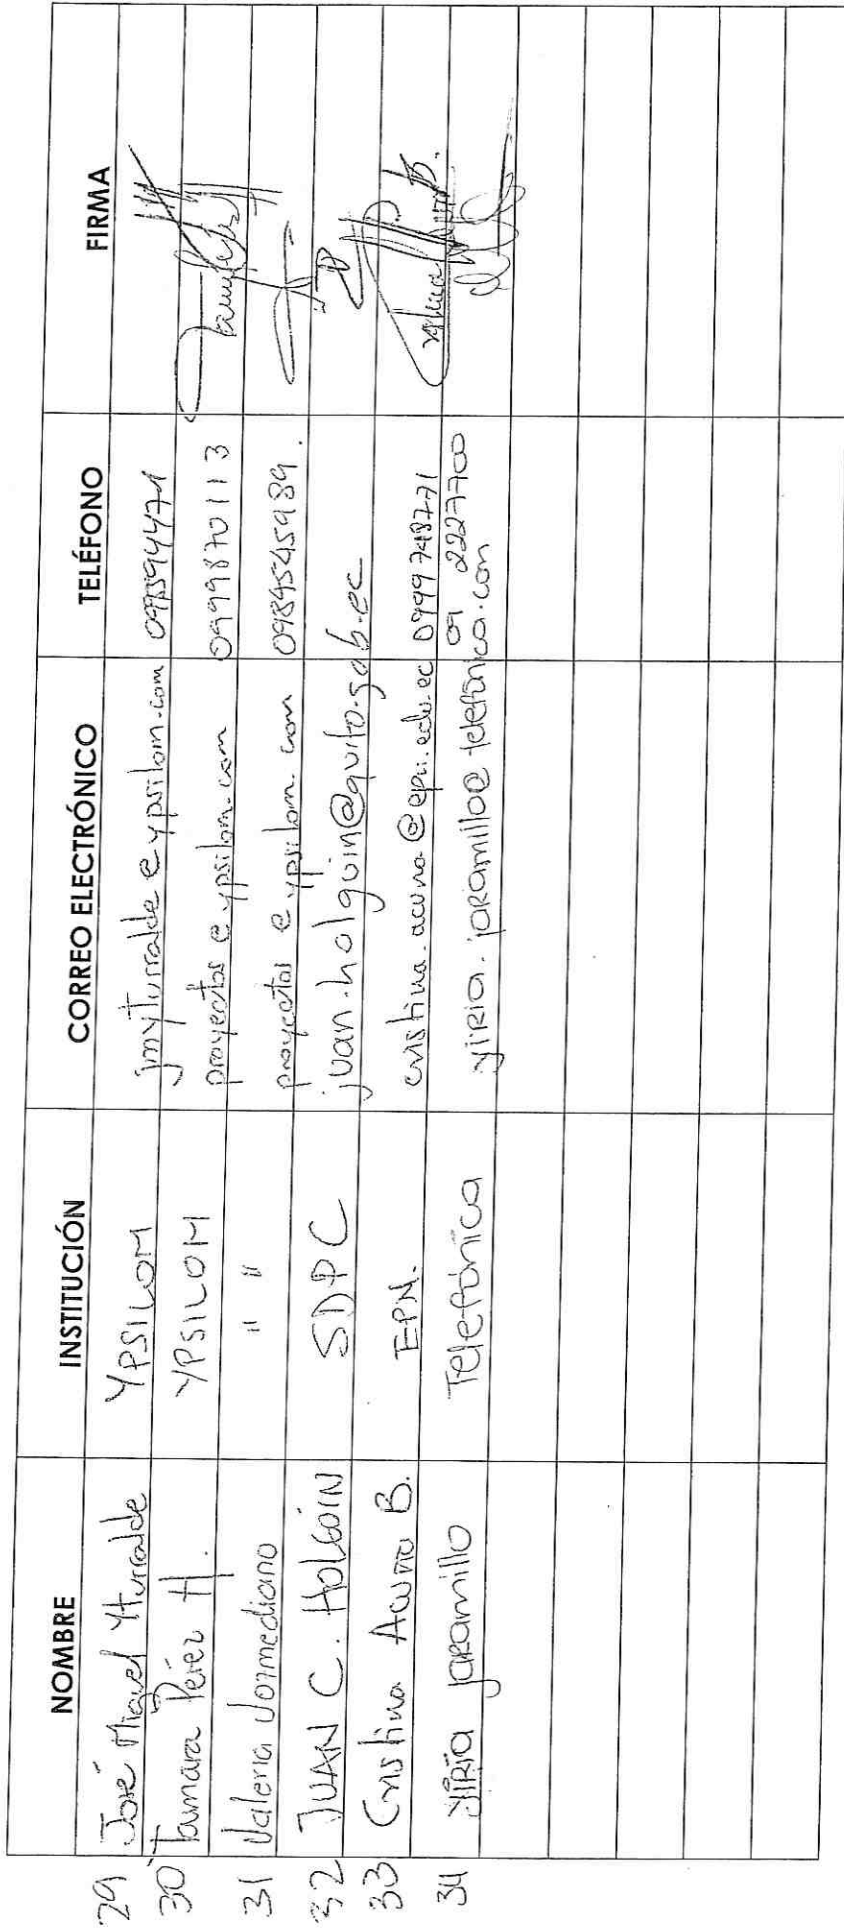 NOMBRE INSTITUCIÓN CORREO ELECTRÓNICO TELÉFONO FIRMA
29 José Miguel Yturralde YPSILOM jmyturralde@ypsilom.com
30 Tamara Pérez H. YPSILOM proyectos@ypsilom.com 0999870113
31 Valeria " " proyectos@ypsilom.com 0984545989.
32 JUAN C. HOLGUÍN SDPC juan.holguin@quito.gob.ec
33 Cristina Acuña B. EPN. cristina.acuna@epn.edu.ec 0999748771
34 yiria jaramillo Telefónica yiria.jaramillo@telefonica.com 09 2227700